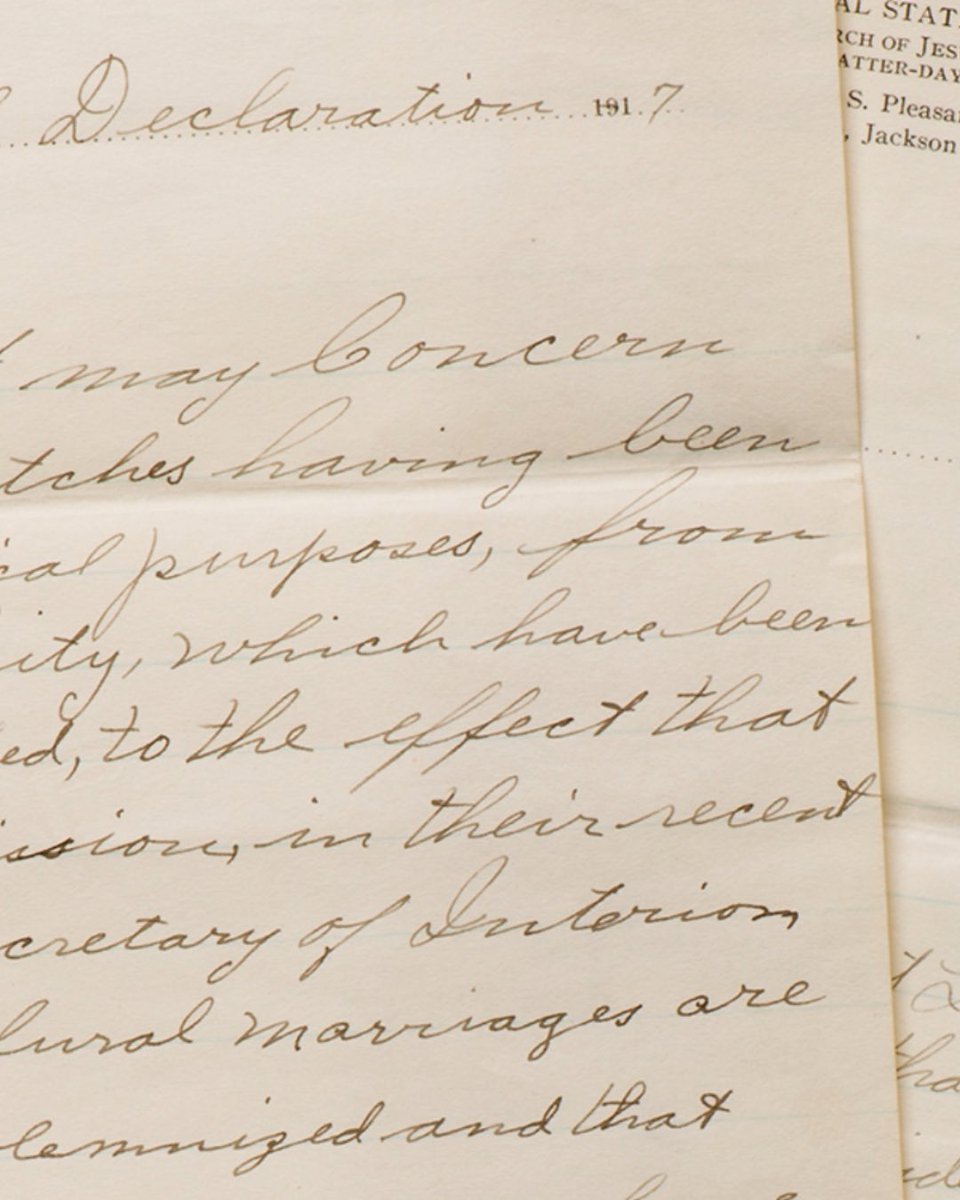 Declaration 1917
may Concern
tches having been
cal purposes, from
ity, which have been
ed, to the effect that
ission, in their recent
cretary of Interior,
lural marriages are
lemnized and that
AL STAT
RCH OF JES
ATTER-DAY
S. Pleasa
, Jackson
tha